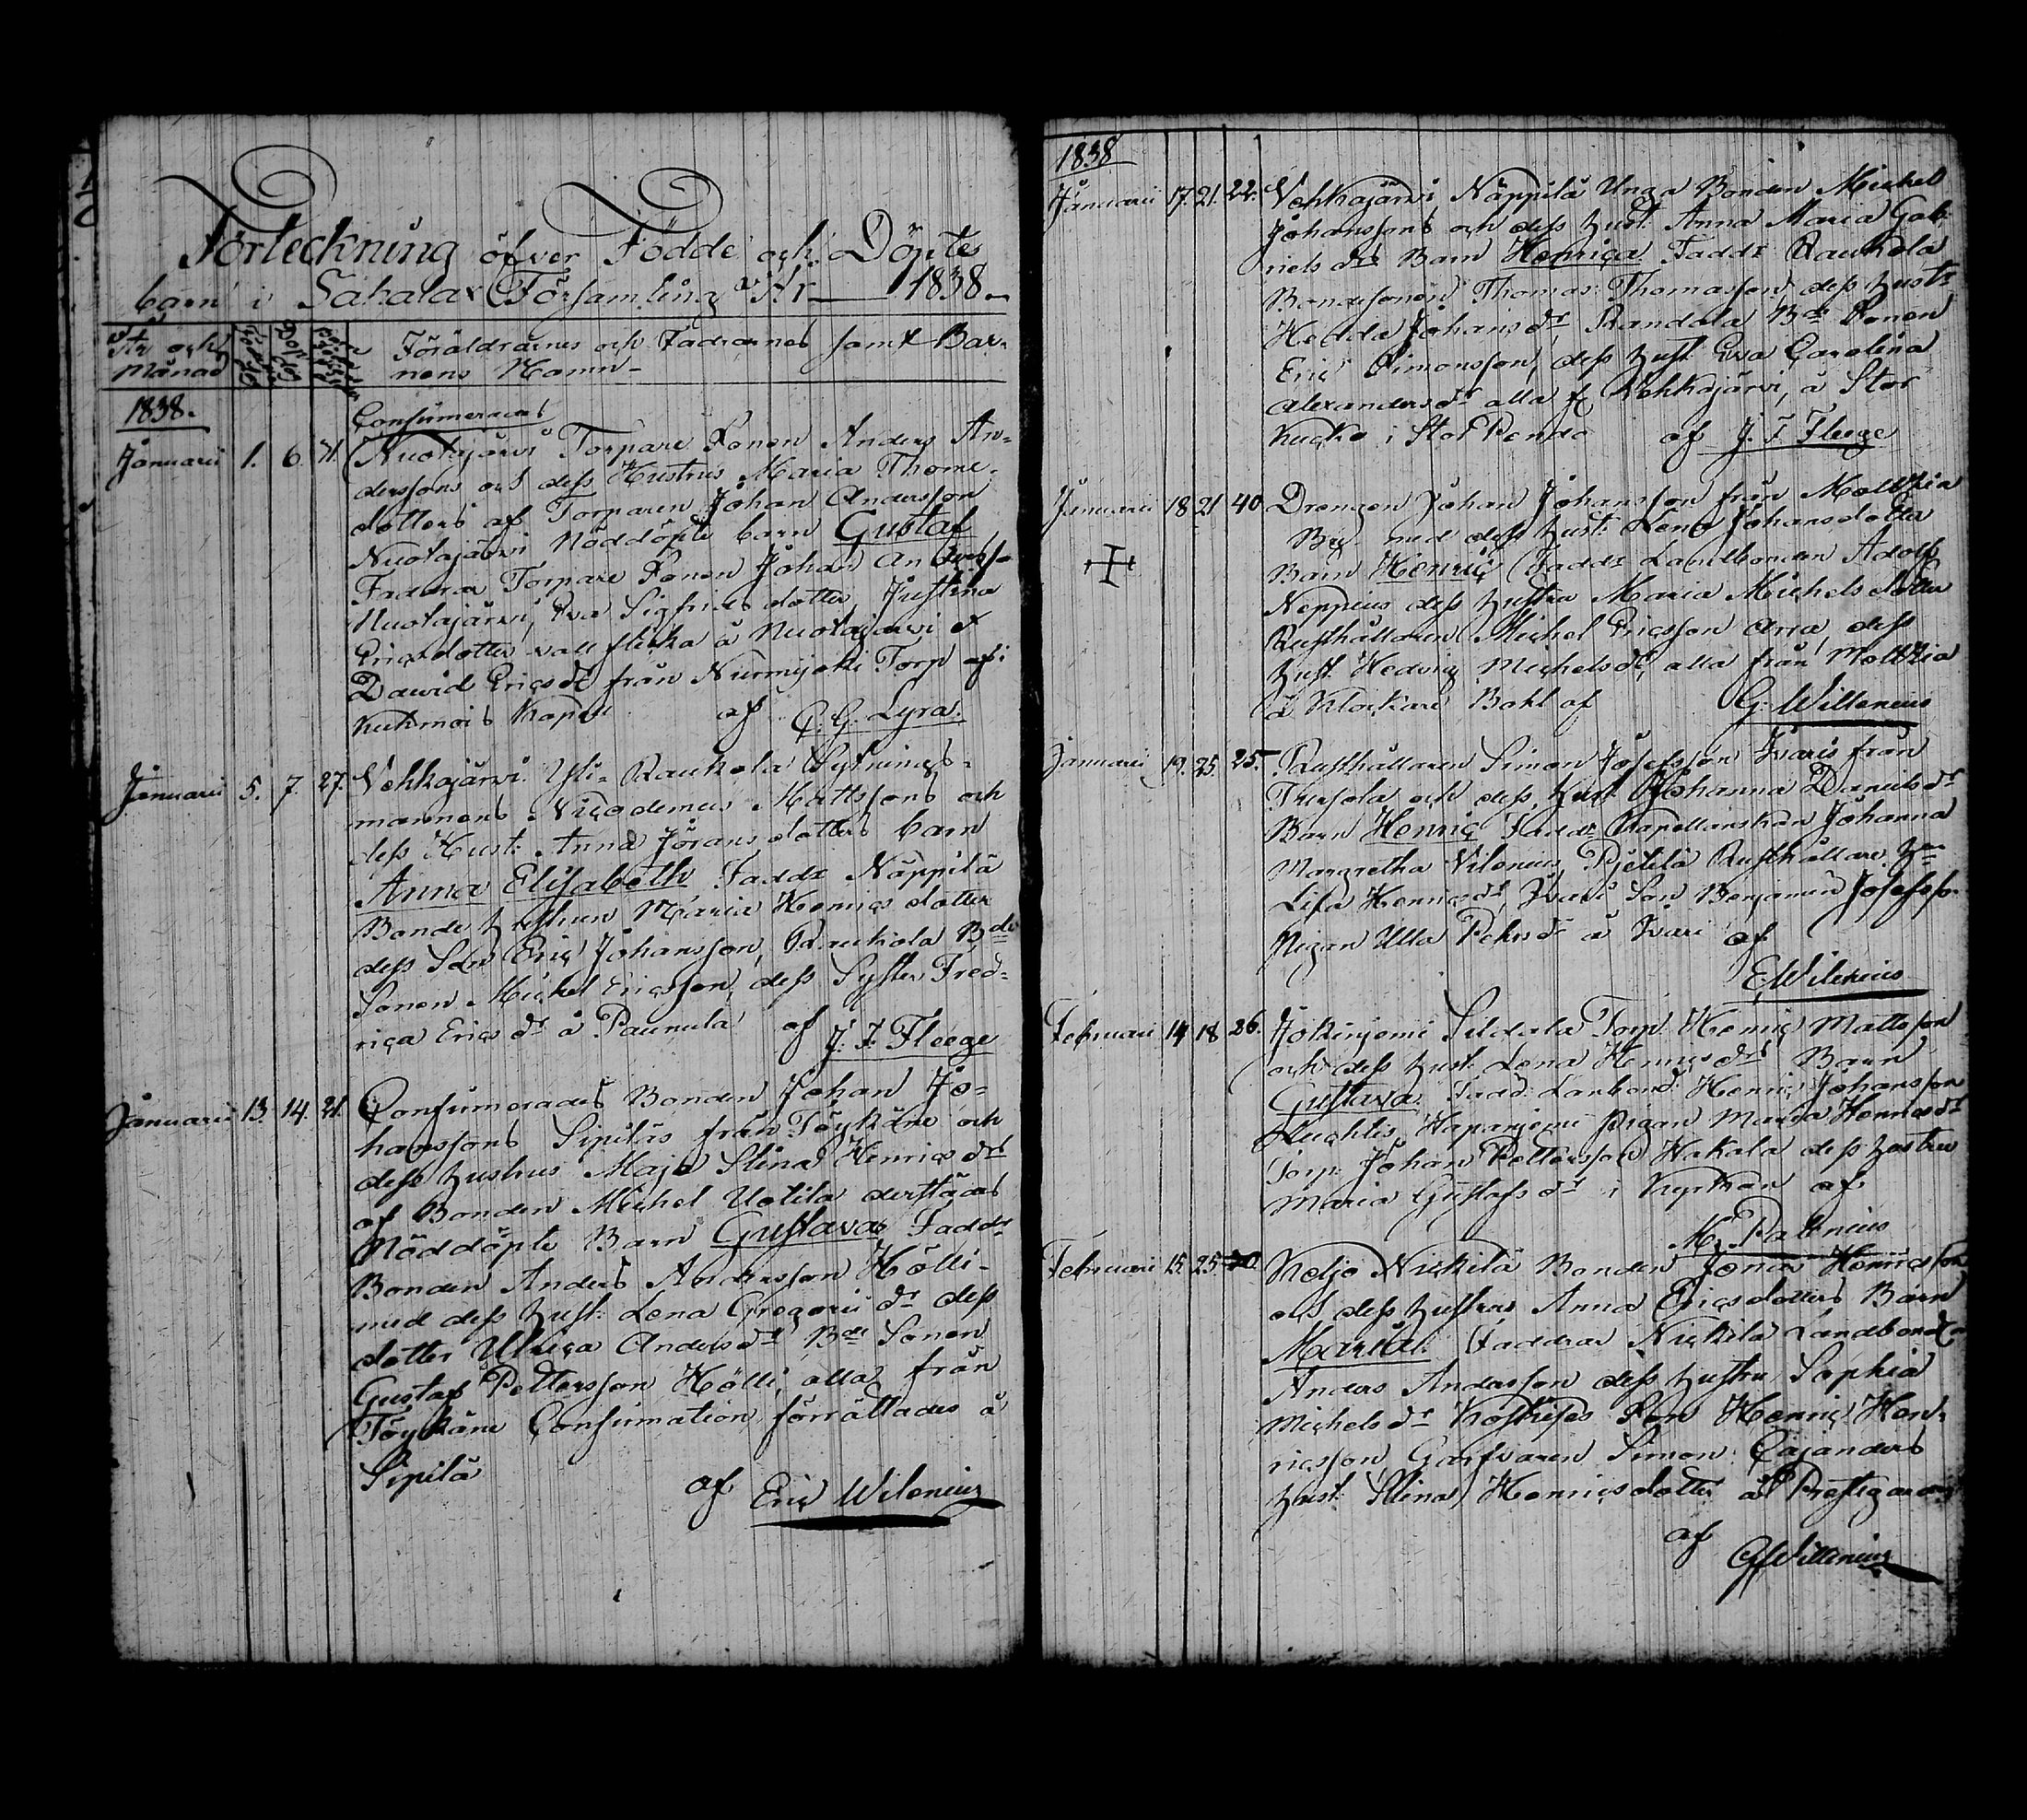 Förteckning öfver Födde och Döpte
barn i Sahalax Församling År 1838
År och Föräldrarnes och Faddrarnes samt Bar-
Månad nens Namn
1838. Confirmerades
Januari 1. 6. 21. Nuotajärvi Torpare Sonen Anders An-
derssons och dess Hustrus Maria Thome-
dotters af Torparen Johan Andersson
Nuotajärvi Nöddöpte barn Gustaf
Faddrar Torpare Sonen Johan
Nuotajärvi, Eva Sigfrids dotter Justina
Erics dotter vall flicka å Nuotajärvi &
David från Nurmijoki Torp
Kuhmois Kapell af G. G. Lyra.
Januarii 5. 7. 27. Vehkajärvi Yli-Raukola Sytnings-
mannens Nicodemus Mattssons och
dess Hust: Anna Jörans dotters barn
Anna Elisabeth Faddr Näppilä
Bonde Hustrun Maria Henrics dotter
dess Son Eric Johansson, Raukola Bde
Sonen Michel Ericsson, dess Syster Fred-
rica Erics dr å Paunula af J. F. Fleege
Januarii 13. 14. 21. Confirmerades Bonden Johan Jo-
hanssons Sipiläs från Töykäne och
dess hustrus Maja Stina Henrics drs
af Bonden Michel Uotila derstädes
Nöddöpte Barn Gustava Faddr
Bonden Anders Andersson Hölli
med dess hust: Lena Gregorii dr dess
dotter Ulrica Anders dr Bde Sonen
Gustaf Pettersson Hölli, alla från
Töykäne Confirmation förrättades å
Sipilä af Eric Wilenius
1838
Januarii 17. 21. 22. Vehkajärvi Näppilä Unga Bonden Michel
Johanssons och dess hust: Anna Maria Gab-
riels drs Barn Henrica Faddr Raukola
Bondesonen Thomas Thomasson, dess hustr
Hedda Johans dr Randala Bde Sonen
Eric Simonsson, dess hust: Eva Carolina
Alexanders dr alla fr Vehkajärvi, å Stor
i af J. F. Fleege
Januarii 18 21 40 Drengen Johan Johansson från Moltzia
By med dess hust: Lena Johans dotter
Barn Henric Faddr Landbonden Adolf
Neppius dess hustru Maria Michels dotter
Rusthållaren Michel Ericsson Arra, dess
hust: Hedvig Michels dr, alla från Moltzia
å Klockare Bohl af G: Willenius
Januarii 19. 25. 25. Rusthållaren Simon Josefsson Ivaris från
och dess hust: Johanna Daniels dr
Barn Henric Faddr Kapellanskan Johanna
Margretha Vilenius, Pjetilä Rusthållare
Lisa Henrics dr, Ivari Son Benjamin Josefsson
Pigan Ulla Pehrs dr å Ivari af
E. Wilenius
Februari 14 18 26. Jokinjemi Sildala Torp. Henric Mattsson
och dess hust: Lena Henrics drs Barn
Gustava. Fadd: Landbond: Henric Johansson
Huchtis Haapanjemi Pigan Maria Henrics dr
Torp. Johan Pettersson Hakala dess hustru
Maria Gustafs dr i Kyrkan af
M. Palenius
Februari 15. 25. Keljo Nickilä Bonden Jonas Henricsson
och dess hustrus Anna Erics dotters Barn
Maria. Faddrar Nickilä Landbonden
Anders Andersson dess hustru Sophia
Michels dr Son Henric Hen-
ricsson, Garfvaren Simon Cajanders
hust: Stina Henrics dotter å Prestgården
af GWillenius